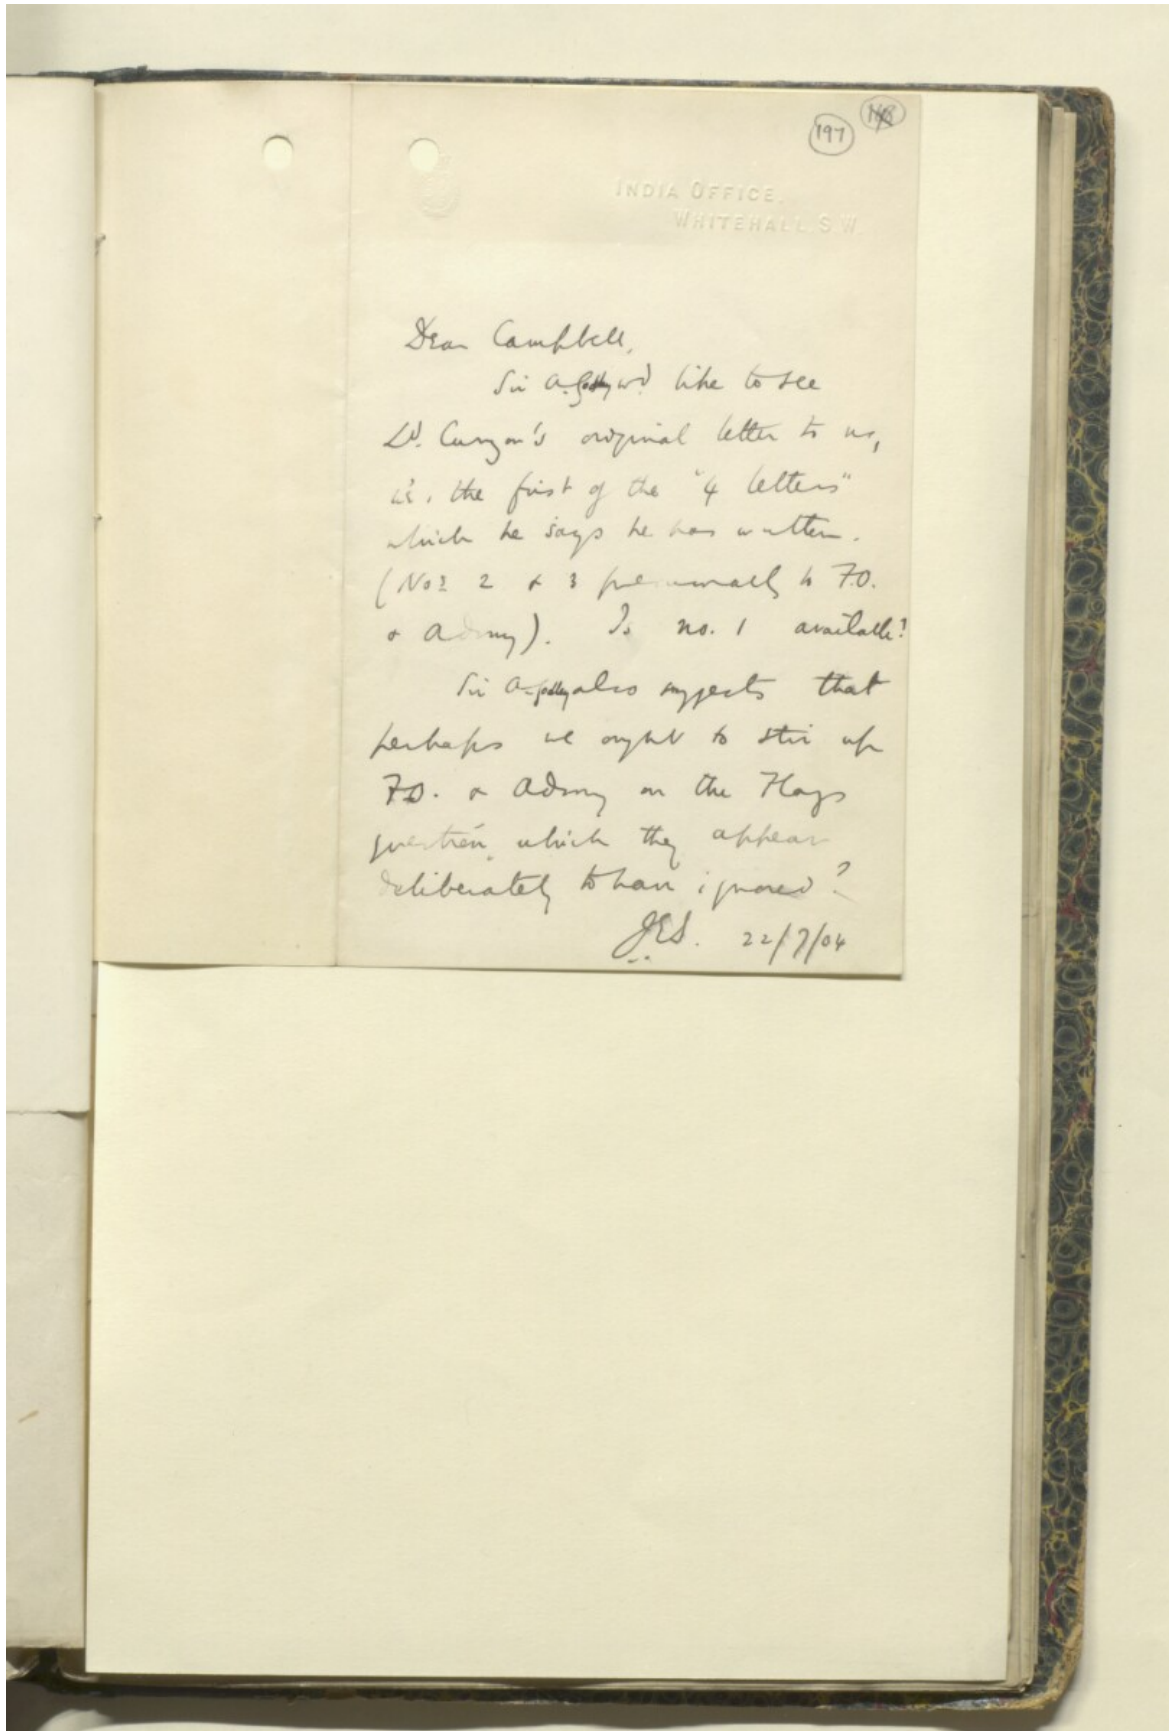 197
INDIA OFFICE,
WHITEHALL. S.W.
Dear Campbell,
Sir A. Godley wd. like to see
Ld. Curzon's original letter to us,
i.e. the first of the "4 letters"
which he says he has written.
(Nos. 2 & 3 presumably to F.O.
& Admy). Is no. 1 available?
Sir A. Godley also suggests that
perhaps we ought to stir up
F.O. & Admy on the Flags
question, which they appear
deliberately to have ignored?
JES. 22/7/04